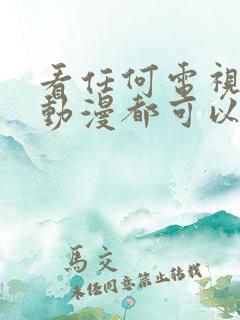 看任何電視
動漫都可以
馬交
未任同意禁止转载